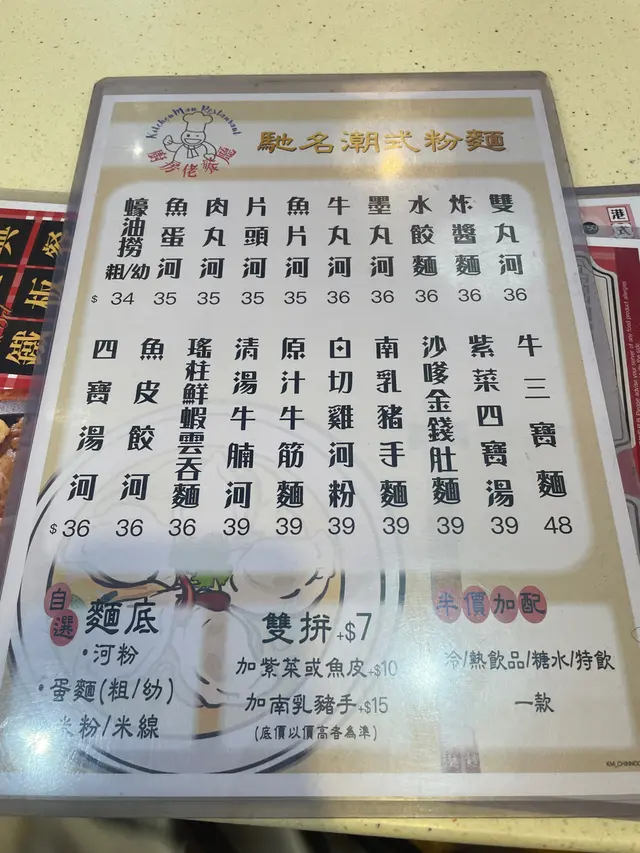 KitchenMan Restaurant
廚房佬茶廳
馳名潮式粉麵
蠔油撈粗/幼 $34
魚蛋河 35
肉丸河 35
片頭河 35
魚片河 35
牛丸河 36
墨丸河 36
水餃麵 36
炸醬麵 36
雙丸河 36
四寶湯河 $36
魚皮餃河 36
瑤柱鮮蝦雲吞麵 36
清湯牛腩河 39
原汁牛筋麵 39
白切雞河粉 39
南乳豬手麵 39
沙嗲金錢肚麵 39
紫菜四寶湯 39
牛三寶麵 48
自選 麵底
·河粉
·蛋麵(粗/幼)
米粉/米線
雙拼+$7
加紫菜或魚皮+$10
加南乳豬手+$15
(底價以價高者為準)
半價加配
冷/熱飲品/糖水/特飲
一款
港式